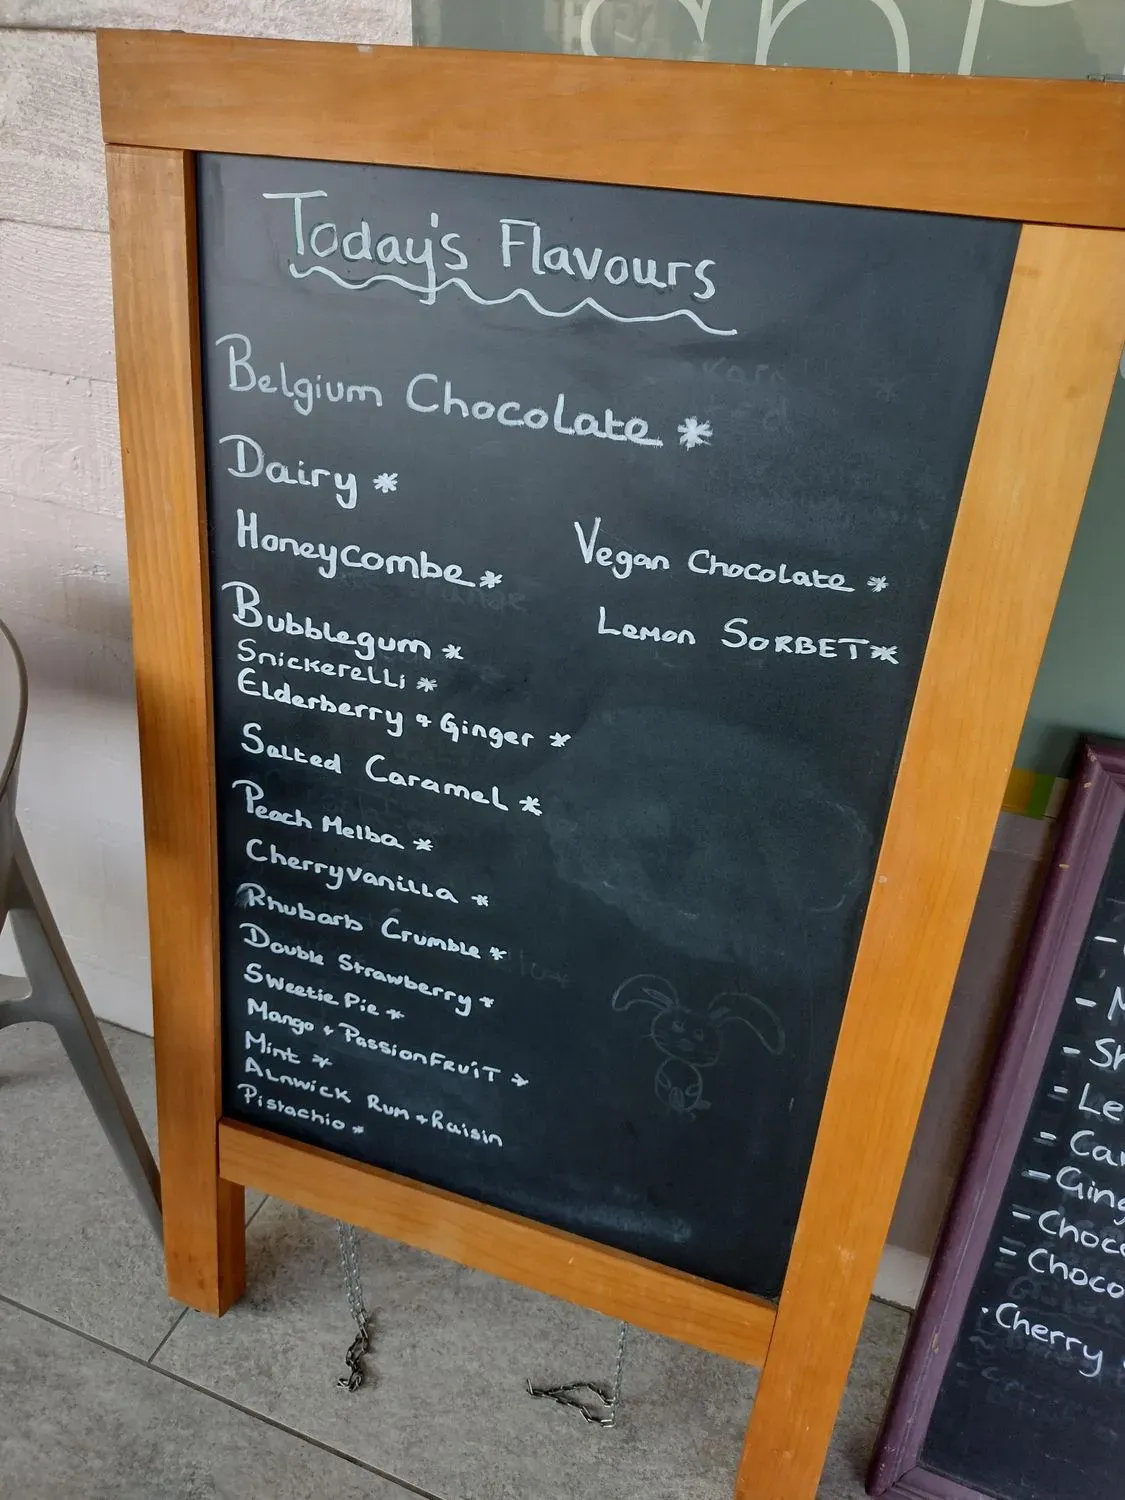 Today's Flavours
Belgium Chocolate *
Dairy *
Honeycombe *
Bubblegum *
Snickerelli *
Elderberry & Ginger *
Salted Caramel *
Peach Melba *
Cherryvanilla *
Rhubarb Crumble *
Double Strawberry *
Sweetie Pie *
Mango + PassionFruiT *
Mint *
Alnwick Rum + Raisin
Pistachio *
Vegan Chocolate *
Lemon SORBET *
- Ging
- Choco
- Choco
. Cherry